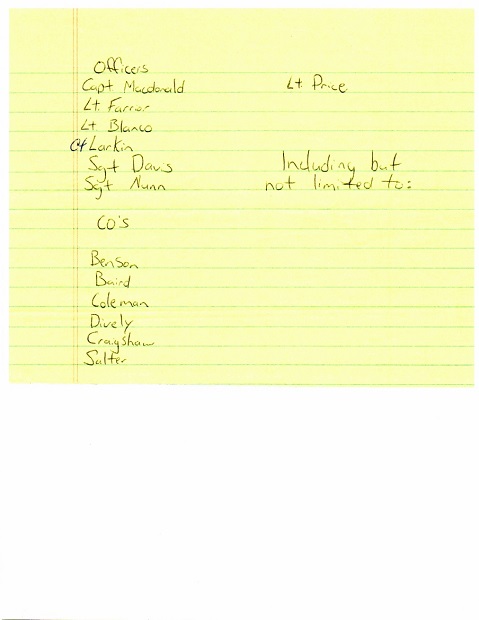 Officers
Capt Macdonald Lt Price
Lt Farror
Lt Blanco
Lt Larkin
Sgt Davis Including but
Sgt Nunn not limited to:
CO's
Benson
Baird
Coleman
Dively
Craigshaw
Salter